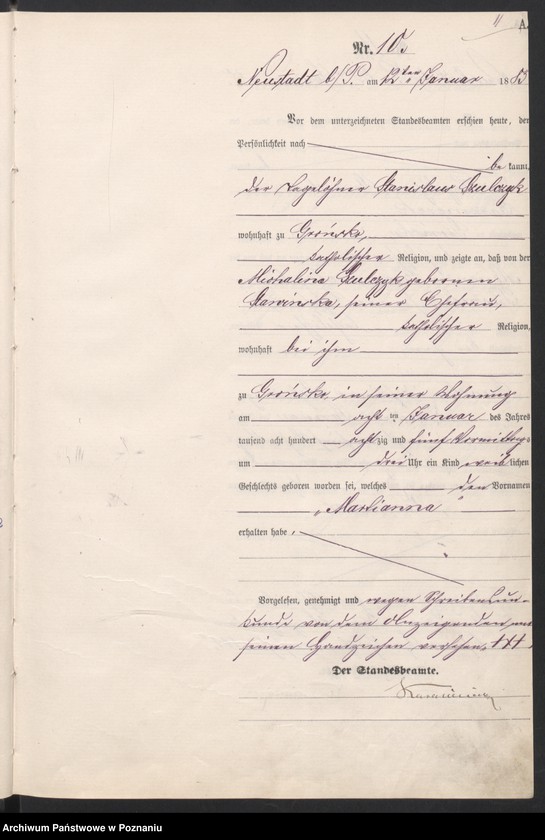 11
A.
Nr. 10.
Neustadt b/P. am 12ten Januar 1885
Vor dem unterzeichneten Standesbeamten erschien heute, der
Persönlichkeit nach
bekannt,
der Tagelöhner Stanislaus Szulczyk
wohnhaft zu Grońsko,
katholischer Religion, und zeigte an, daß von der
Michalina Szulczyk geborenen
seiner Ehefrau,
katholischer Religion,
wohnhaft bei ihm
zu Grońsko in seiner Wohnung
am acht ten Januar des Jahres
tausend acht hundert achtzig und fünf Vormittags
um drei Uhr ein Kind weiblichen
Geschlechts geboren worden sei, welches den Vornamen
„Marianna“
erhalten habe.
Vorgelesen, genehmigt und wegen Schreibensun-
kunde von dem Anzeigenden mit
seinen Handzeichen versehen. +++
Der Standesbeamte.
Archiwum Państwowe w Poznaniu